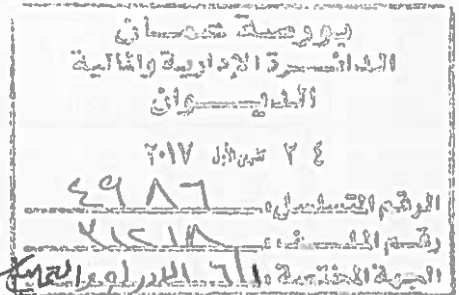 بورصة عمان
الدائرة الإدارية والمالية
الديوان
٢٤ تشرين الأول ٢٠١٧
الرقم المتسلسل: ٤٩٨٦
رقم الملف: ٣١٢١٨
الجهة المختصة: